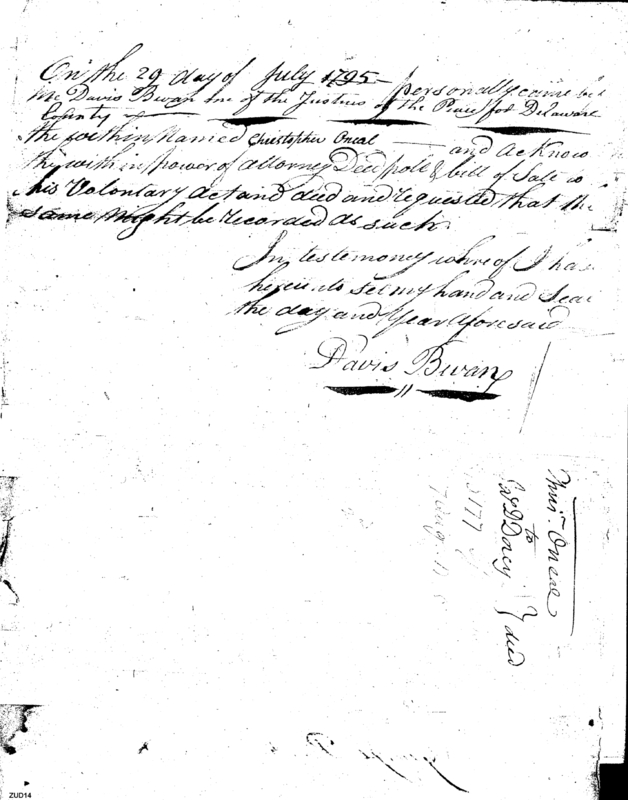 On the 29 day of July 1795 personally came be
Me Davis Bevan one of the Justices of the Peace for Delaware
County
the within Named Christopher Oneal and acknow
the within power of attorney Deed poll & bill of Sale to
his Volontary act and died and requested that the
same Might be recorded as such
In testemoney whre of I ha
hereunto set my hand and Seal
the day and Year Aforesaid
Davis Bevan
Oneal
to
Dorcy
died
ZUD14